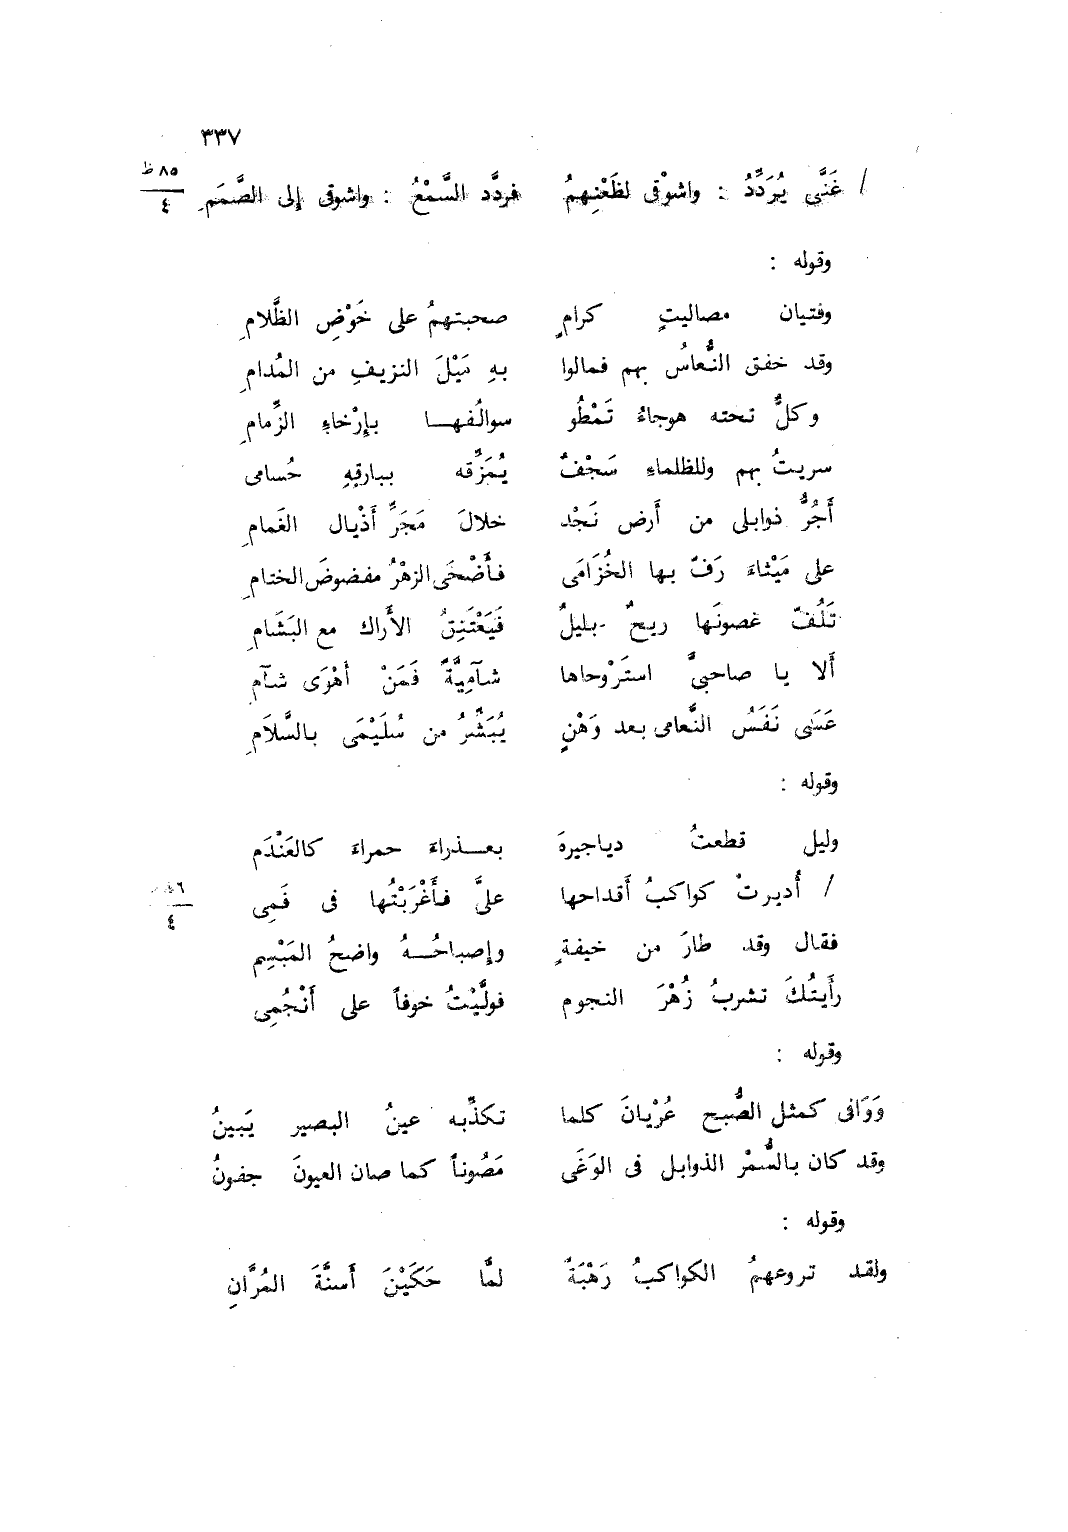 ٣٣٧
/ غَنَّى يُرَدِّدُ : واشوْقى لظَعْنِهِمُ فردَّد السَّمْعُ : واشوقى إلى الصَّمَمِ ٨٥ ظ / ٤
وقوله :
وفتيان مصاليتٍ كرامٍ صحبتهمُ على خَوْضِ الظَّلامِ
وقد خفق النُّعاسُ بهم فمالوا بهِ مَيْلَ النزيفِ من المُدامِ
وكلٌّ تحته هوجاءُ تَمْطُو سوالُفهـــا بإِرْخاءِ الزِّمامِ
سريتُ بهم وللظلماءِ سَجْفٌ يُمَزِّقه ببارقِهِ حُسامى
أَجُرُّ ذوابلى من أَرض نَجْد خلالَ مَجَرِّ أَذْيال الغَمامِ
على مَيْثاءَ رَفّ بها الخُزَامَى فأَضْحَى الزهْرُ مفضوضَ الختامِ
تَلُفّ غصونَها ريحٌ بليلٌ فَيَعْتَنِقُ الأَراك مع البَشَامِ
أَلا يا صاحبىَّ استَرْوحاها شآمِيَّةً فَمَنْ أهْوَى شآمِ
عَسَى نَفَسُ النَّعامى بعد وَهْنٍ يُبَشِّرُ من سُلَيْمَى بالسَّلاَمِ
وقوله :
وليل قطعتُ دياجيرهَ بعـــذراءَ حمراءَ كالعَنْدَم
/ أُديرتْ كواكبُ أَقداحها علىَّ فأَغْرَبْتُها فى فَمِى ٤
فقال وقد طارَ من خيفةٍ وإصباحُـــهُ واضحُ المَبْسِم
رأَيتُكَ تشربُ زُهْرَ النجوم فولَّيْتُ خوفاً على أَنْجُمِى
وقوله :
وَوَافى كمثل الصُّبح عُرْيانَ كلما تكذِّبه عينُ البصير يَبينُ
وقد كان بالسُّمْر الذوابل فى الوَغَى مَصُوناً كما صان العيونَ جفونُ
وقوله :
ولقد تروعهمُ الكواكبُ رَهْبَةً لمَّا حَكَيْنَ أَسنَّةَ المُرَّانِ